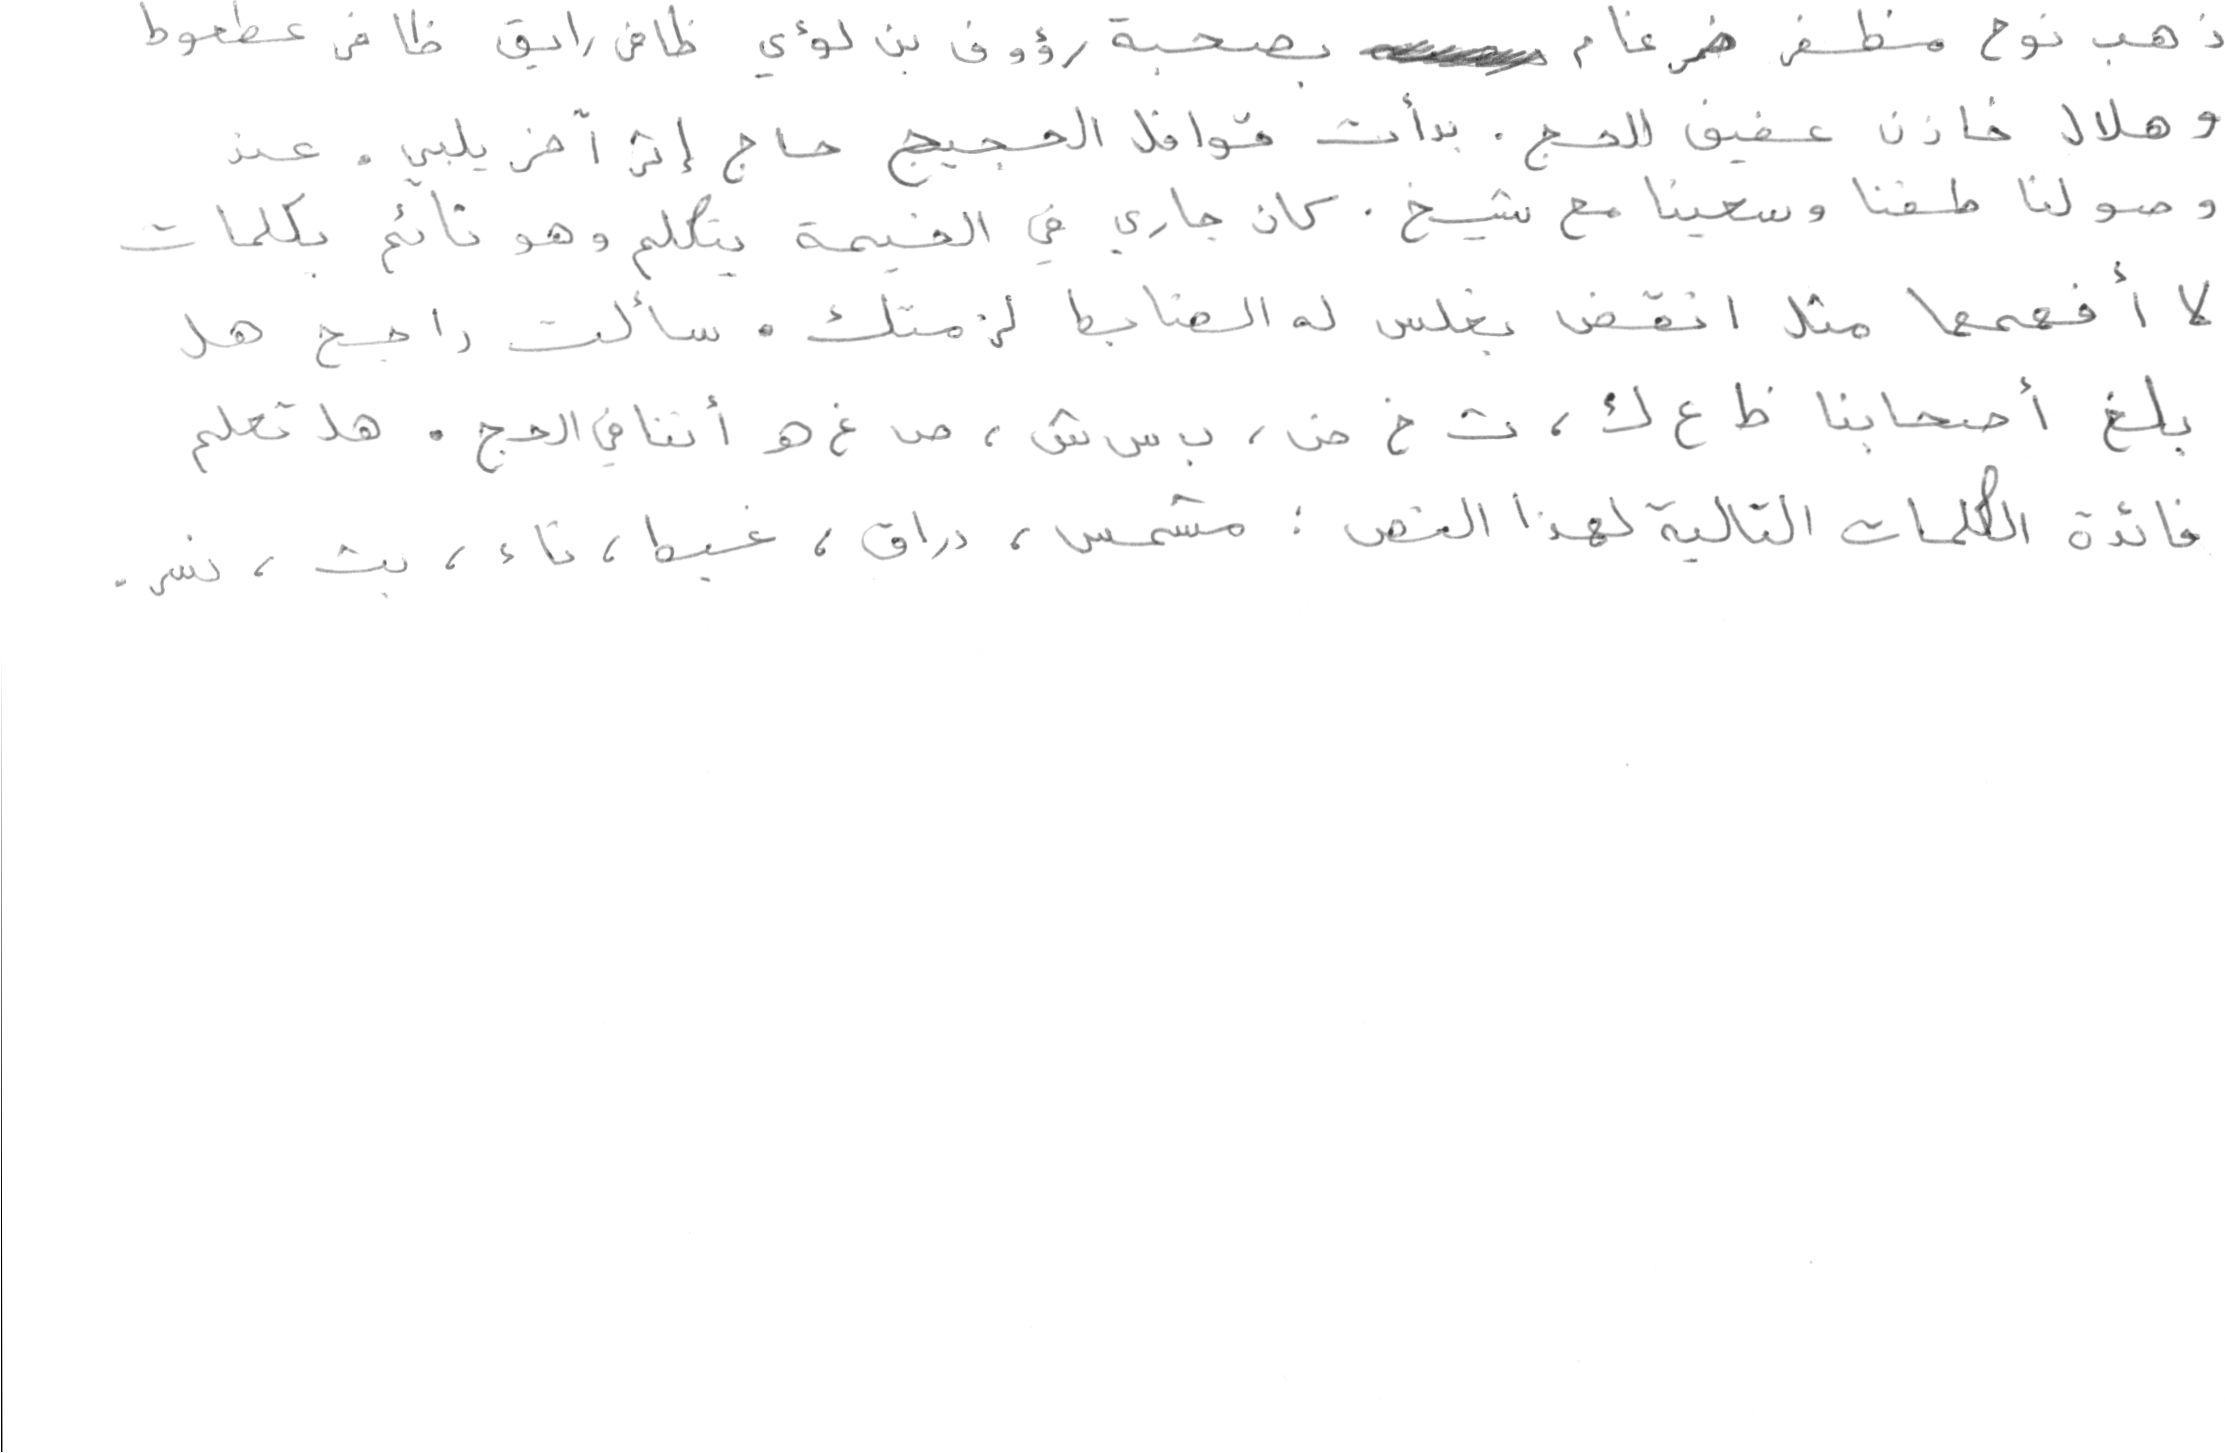 ذهب نوح مظفر ضرغام بصحبة رؤوف بن لؤي ظافر رايق ظافر عطعوط
وهلال خازن عفيف للحج. بدأت قوافل الحجيج حاج إثر آخر يلبي. عند
وصولنا طفنا وسعينا مع شيخ. كان جاري في الخيمة يتكلم وهو نائم بكلمات
لا أفهمها مثل انقض يغلس له الضابط لزمتك. سألت راجح هل
بلغ أصحابنا ظ ع ك، ث خ ض، ب س ش، ص غ هو أننا في الحج. هل تعلم
فائدة الكلمات التالية لهذا النص: مشمس، دراق، غيط، ناء، بث، نسر.